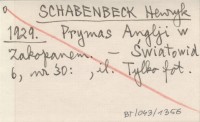 SCHABENBECK Henryk
1929. Prymas Anglji w
Zakopanem. – Światowid
6, nr 30: , il. Tylko fot.
BJ/043/1356